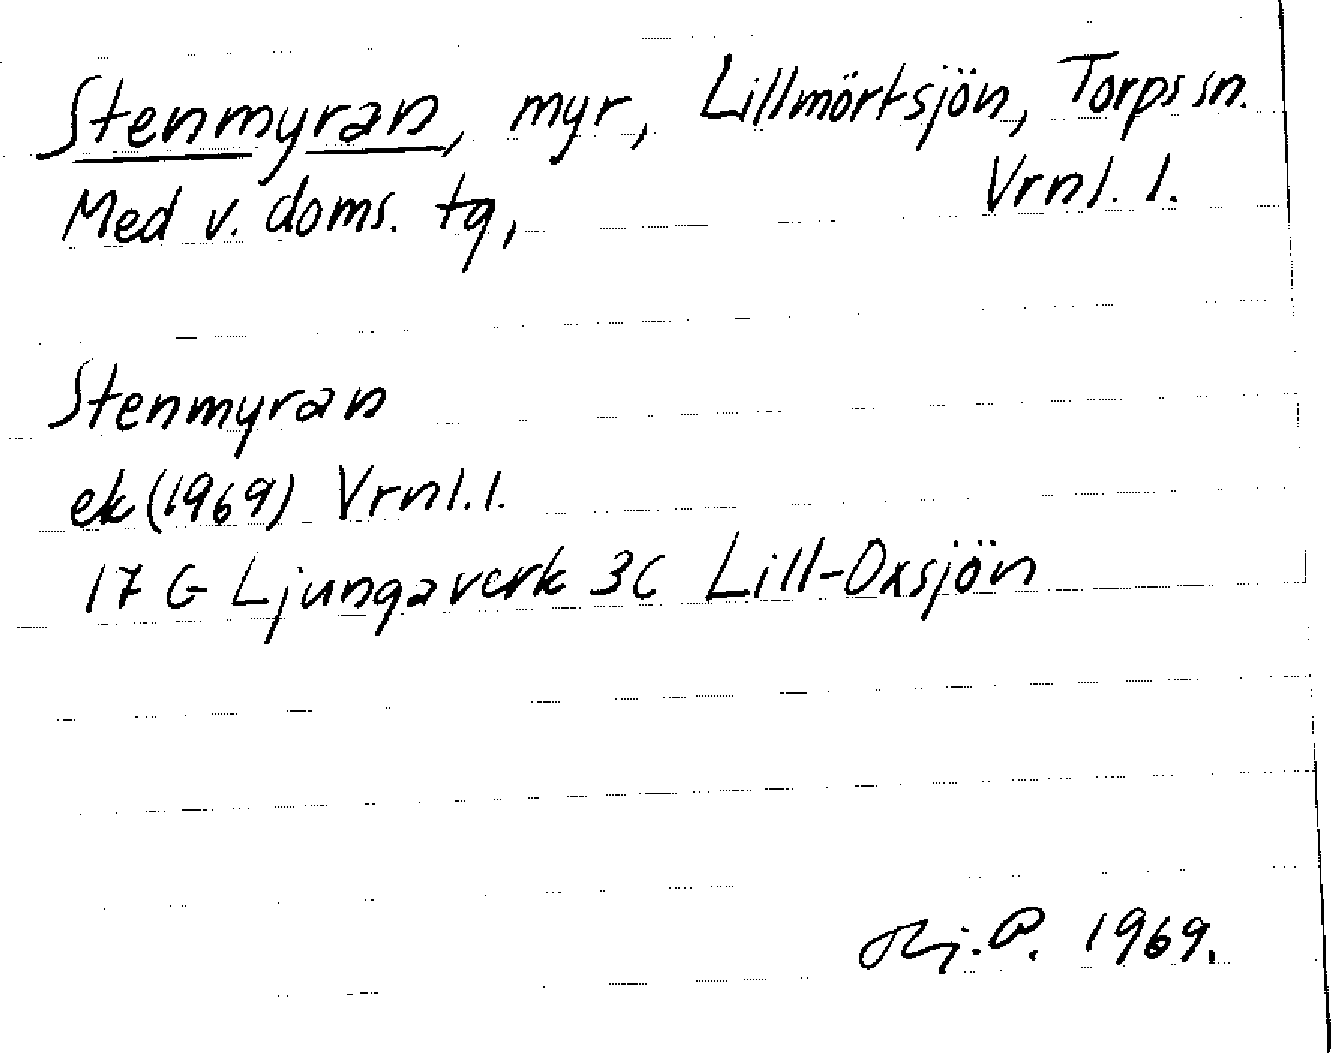 Stenmyran, myr, Lillmörtsjön, Torps sn.
Med v. doms. tg, Vrnl. l.
Stenmyran
ek (1969) Vrnl. l.
17 G Ljungaverk 3c Lill-Oxsjön
Hj. P. 1969.